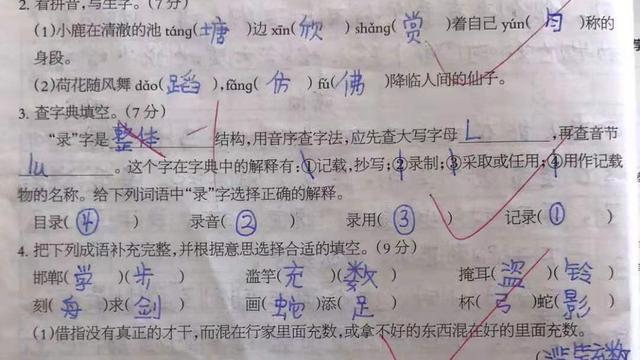 2. 看拼音,写生字。(7分)
(1)小鹿在清澈的池 táng(塘)边 xīn(欣) shǎng(赏)着自己 yún(匀)称的
身段。
(2)荷花随风舞 dǎo(蹈),fǎng(仿) fú(佛)降临人间的仙子。
3. 查字典填空。(7分)
“录”字是 整体 结构,用音序查字法,应先查大写字母 L ,再查音节
lu 。这个字在字典中的解释有:①记载,抄写;②录制;③采取或任用;④用作记载
物的名称。给下列词语中“录”字选择正确的解释。
目录(④) 录音(②) 录用(③) 记录(①)
4. 把下列成语补充完整,并根据意思选择合适的填空。(9分)
邯郸(学)(步) 滥竽(充)(数) 掩耳(盗)(铃)
刻(舟)求(剑) 画(蛇)添(足) 杯(弓)蛇(影)
(1)借指没有真正的才干,而混在行家里面充数,或拿不好的东西混在好的里面充数。